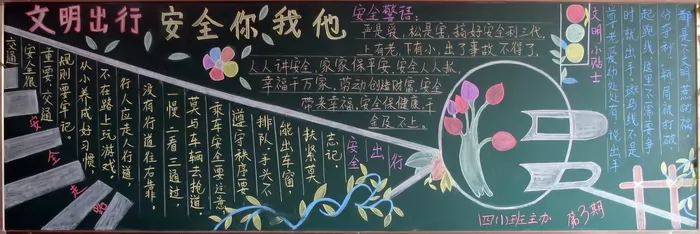 文明出行 安全你我他
安全警语:
严是爱、松是害,搞好安全利三代,
上有老、下有小、出了事故不得了。
人人讲安全,家家保平安,安全人人抓,
幸福千万家。劳动创造财富,安全
带来幸福,安全保健康,千
金及不上。
交通
安全很
重要,交通
规则要牢记
从小养成好习惯,
不在路上玩游戏
行人应走人行道,
没有行道往右靠,
一慢二看三通过,
莫与车辆去抢道,
乘车安全要注意
遵守秩序要
排队,手头不
能出车窗,
扶紧莫
忘记。
安全出行
安全走路
文明小贴士
尊老爱幼处处有
斑马线不是
起跑线,这里不需要争
四(1)班主办 第3期